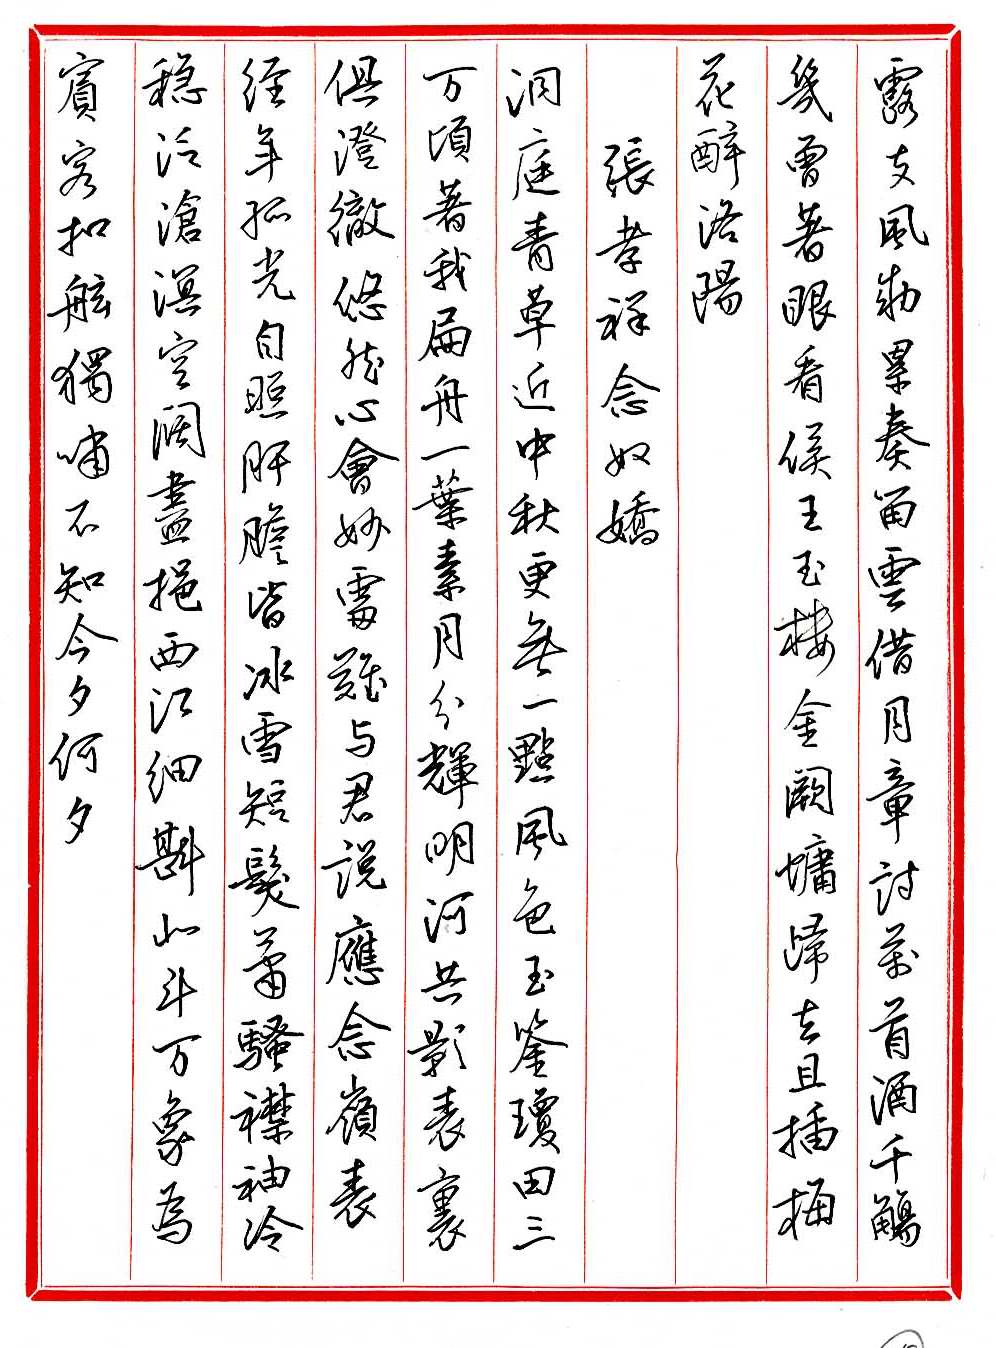 露支風勑累奏留雲借月章詩萬首酒千觴
幾曾著眼看侯王玉樓金闕慵歸去且插梅
花醉洛陽
張孝祥念奴嬌
洞庭青草近中秋更無一點風色玉鑒瓊田三
万頃著我扁舟一葉素月分輝明河共影表裏
俱澄徹悠然心會妙處難与君説應念嶺表
经年孤光自照肝膽皆冰雪短髮蕭騷襟袖冷
穩泛滄溟空闊盡挹西江細斟北斗万象為
賓客扣舷獨嘯不知今夕何夕